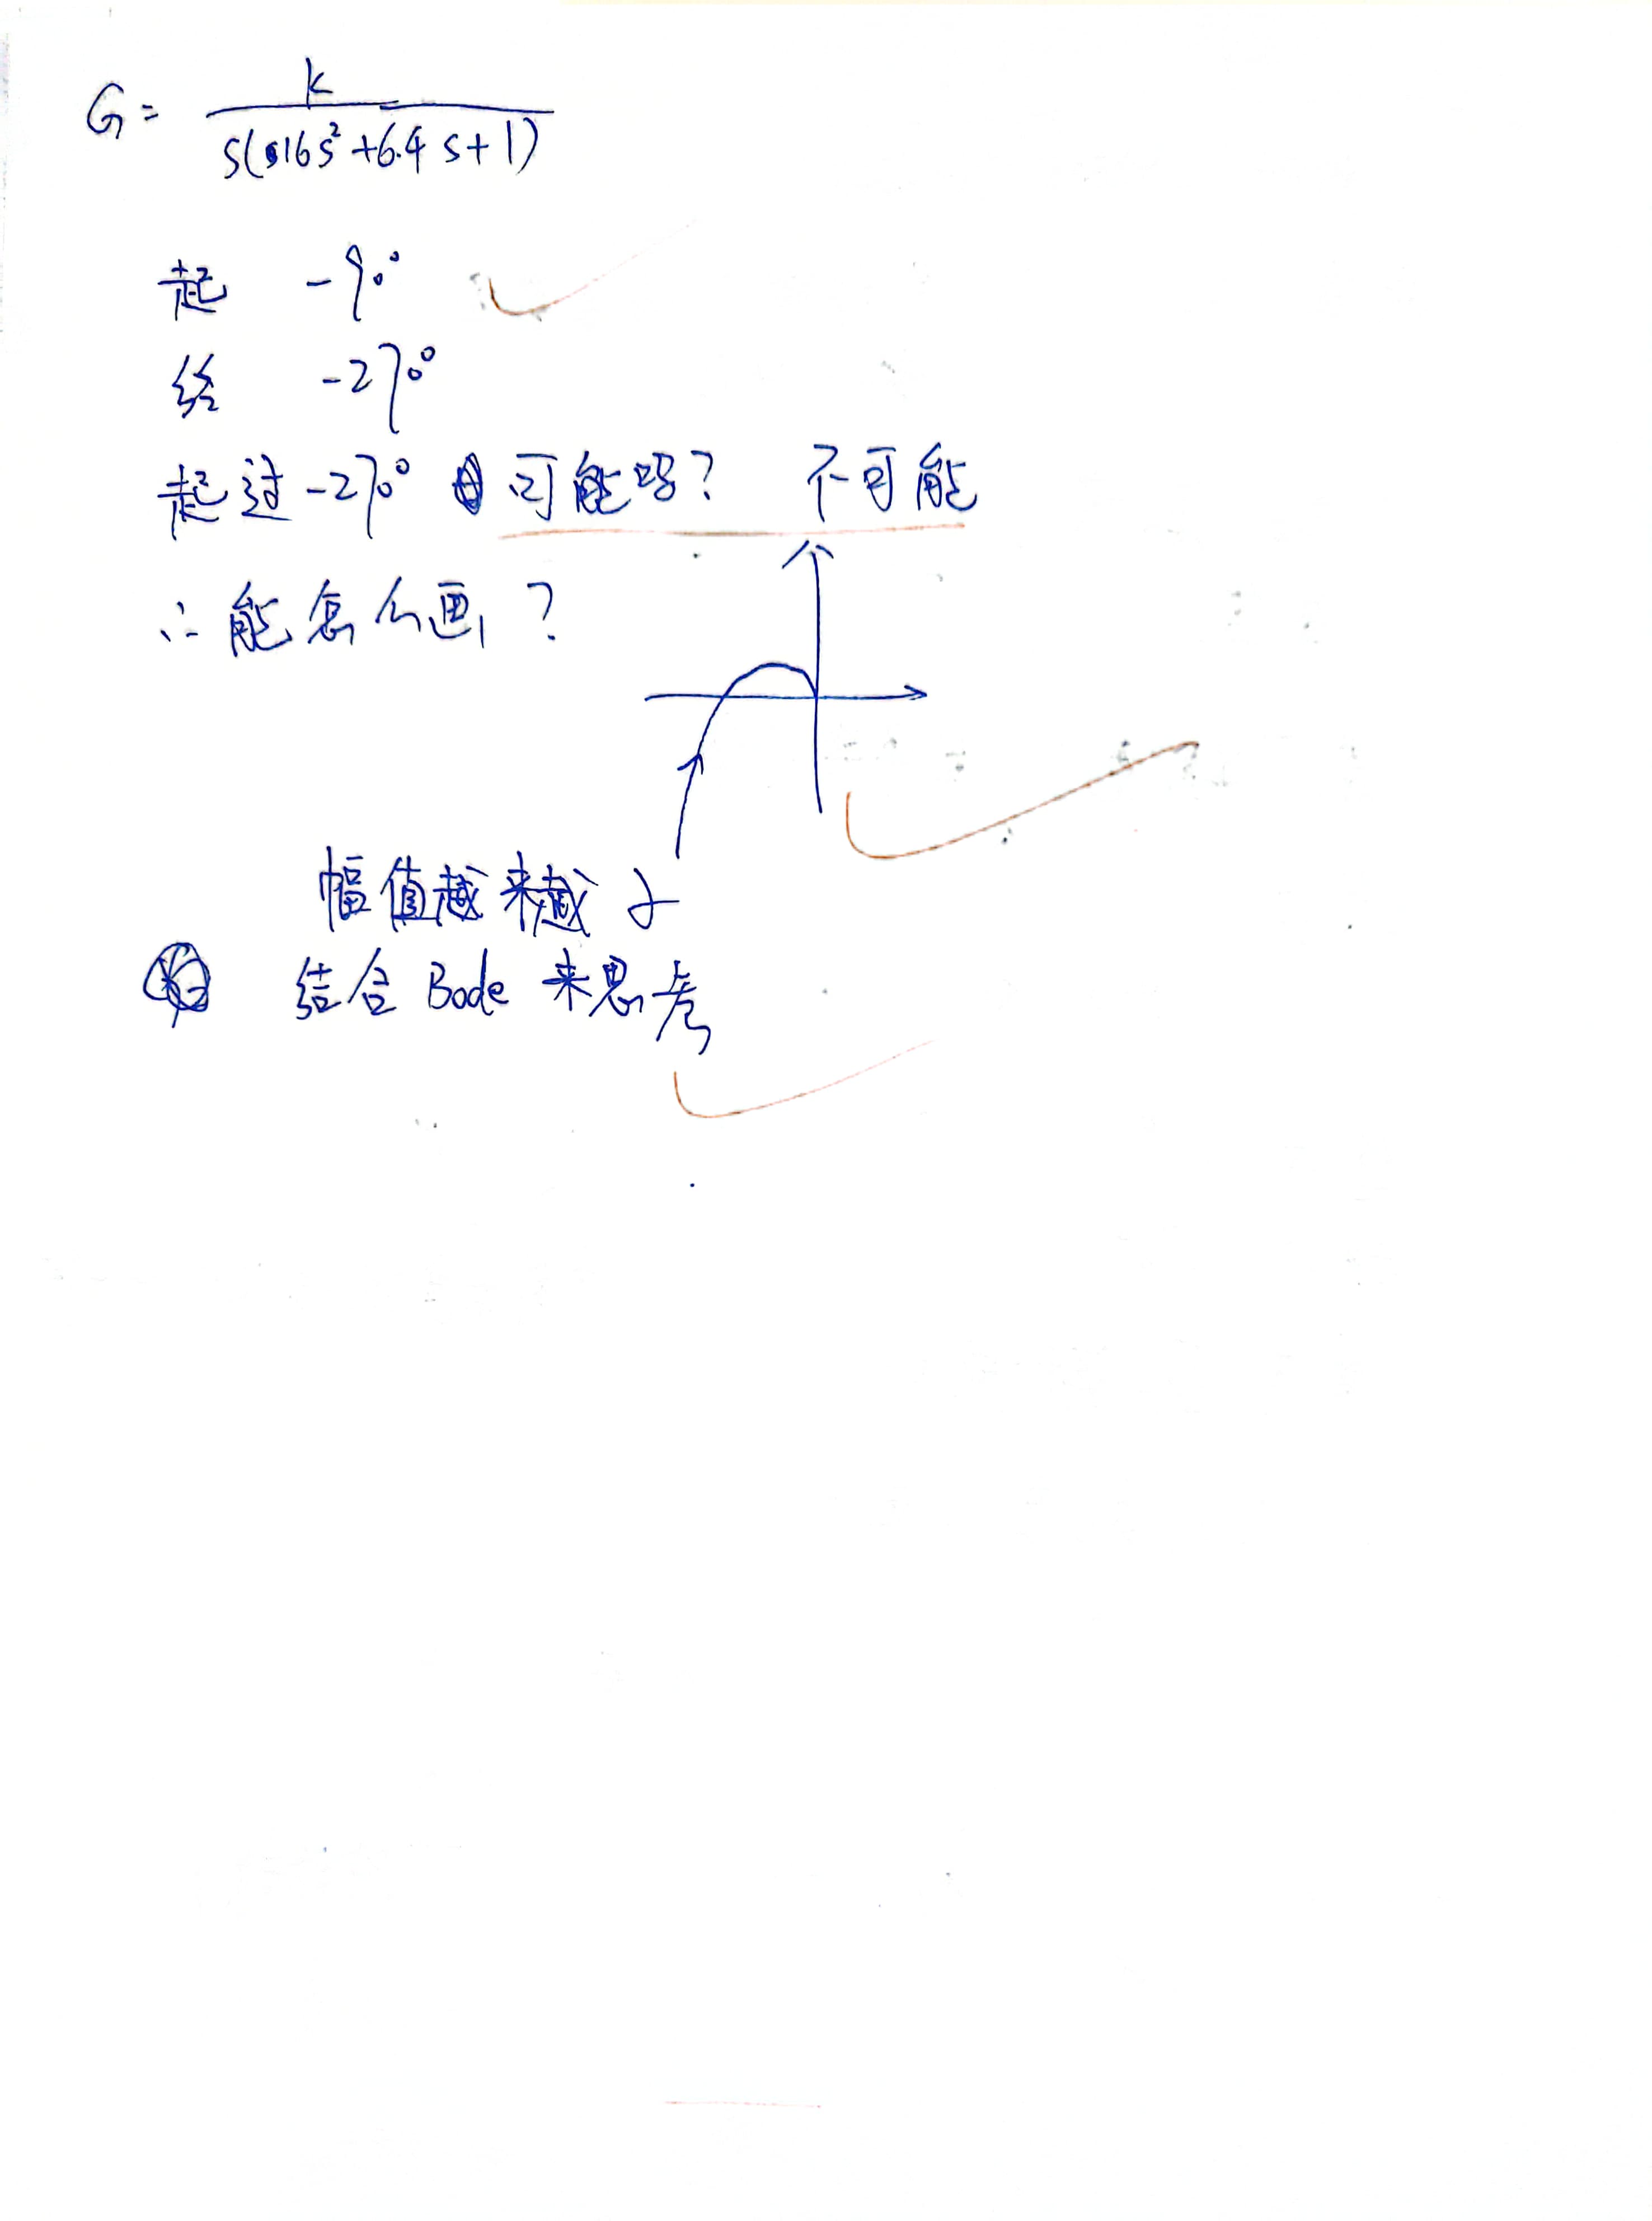 G = k / s(16s²+6.4s+1)
起 -90°
终 -270°
起过-270° 可能吗? 不可能
∴能怎么画?
幅值越来越小
结合 Bode 来思考